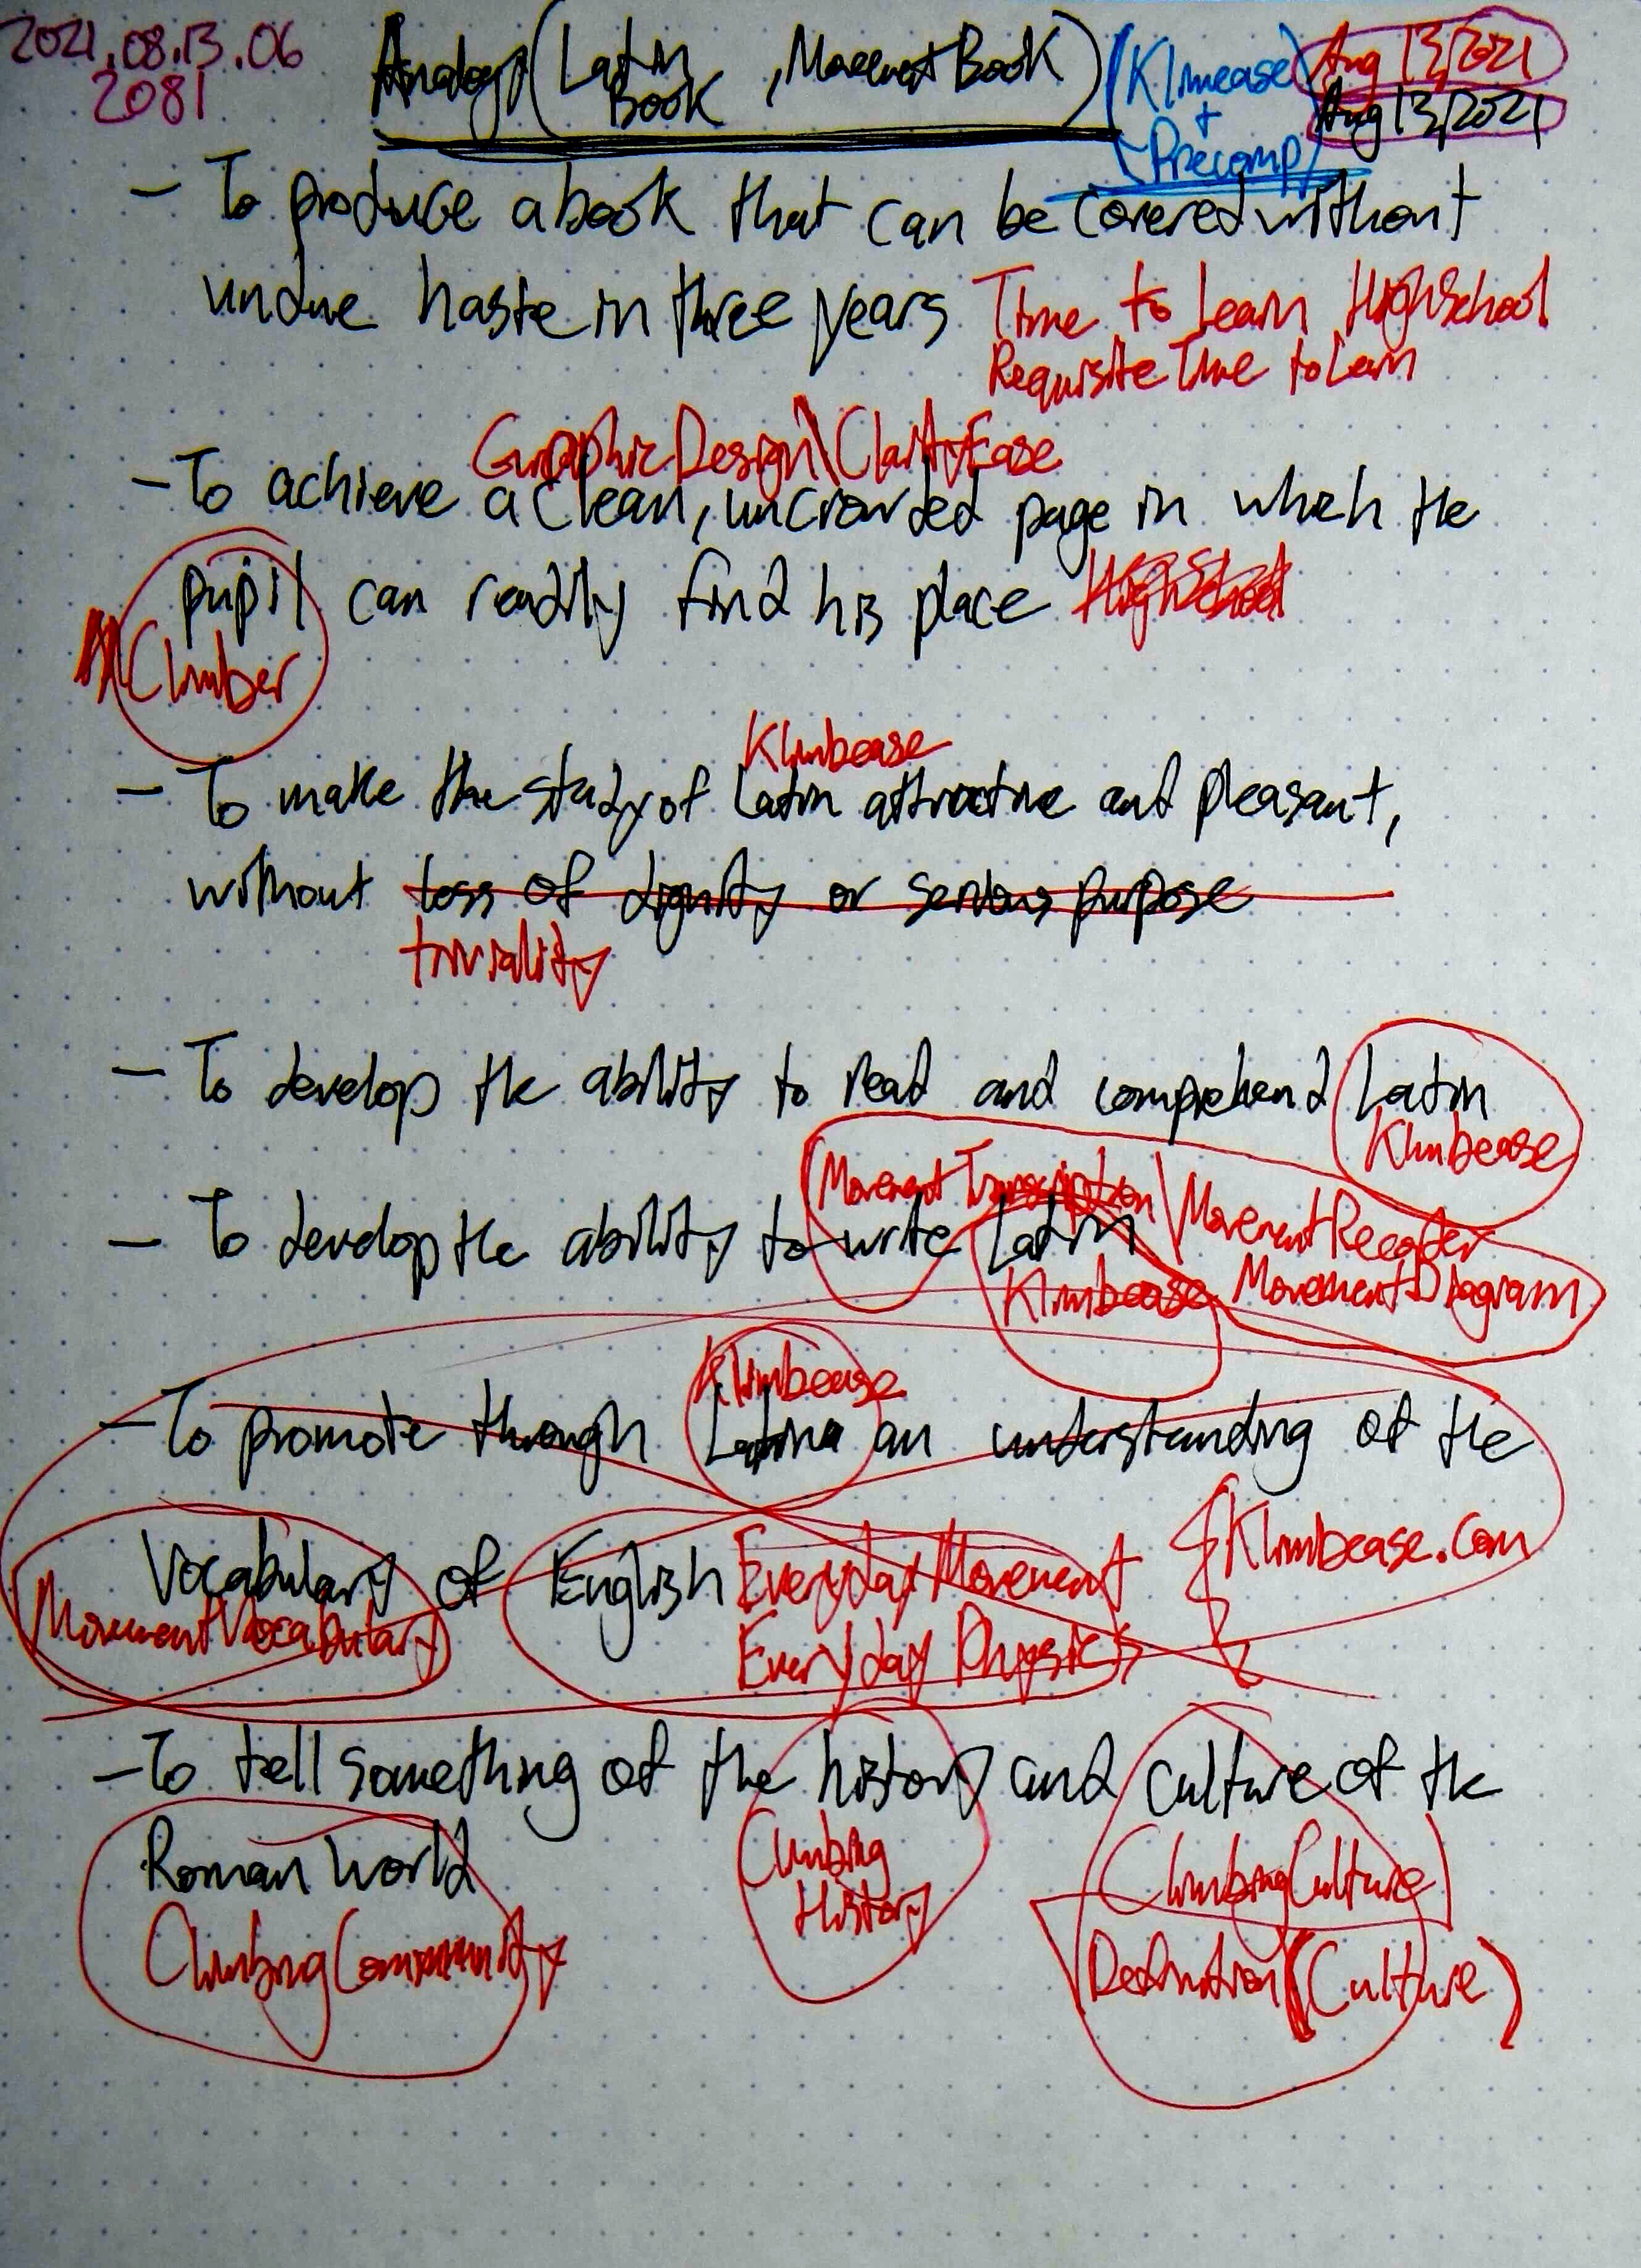 2021.08.13.06
2081
Analogy(Latin Book, MovementBook) (Klimbease + Precomp) Aug 13, 2021
Aug 13, 2021
- To produce a book that can be covered without
undue haste in three years Time to Learn HighSchool
Requisite Time to Learn
GraphicDesign\ClarityEase
- To achieve a clean, uncrowded page in which the
pupil can readily find his place HighSchool
Climber
Klimbease
- To make the study of Latin attractive and pleasant,
without loss of dignity or serious purpose
triviality
- To develop the ability to read and comprehend Latin
Klimbease
Movement Transcription\MovementRecorder
- To develop the ability to write Latin
Klimbease MovementDiagram
Klimbease
- To promote through Latin an understanding of the
Vocabulary of English Everyday Movement Klimbease.com
MovementVocabulary Everyday Physics
- To tell something of the history and culture of the
Roman World
Climbing History
ClimbingCulture
ClimbingCommunity
Definition(Culture)